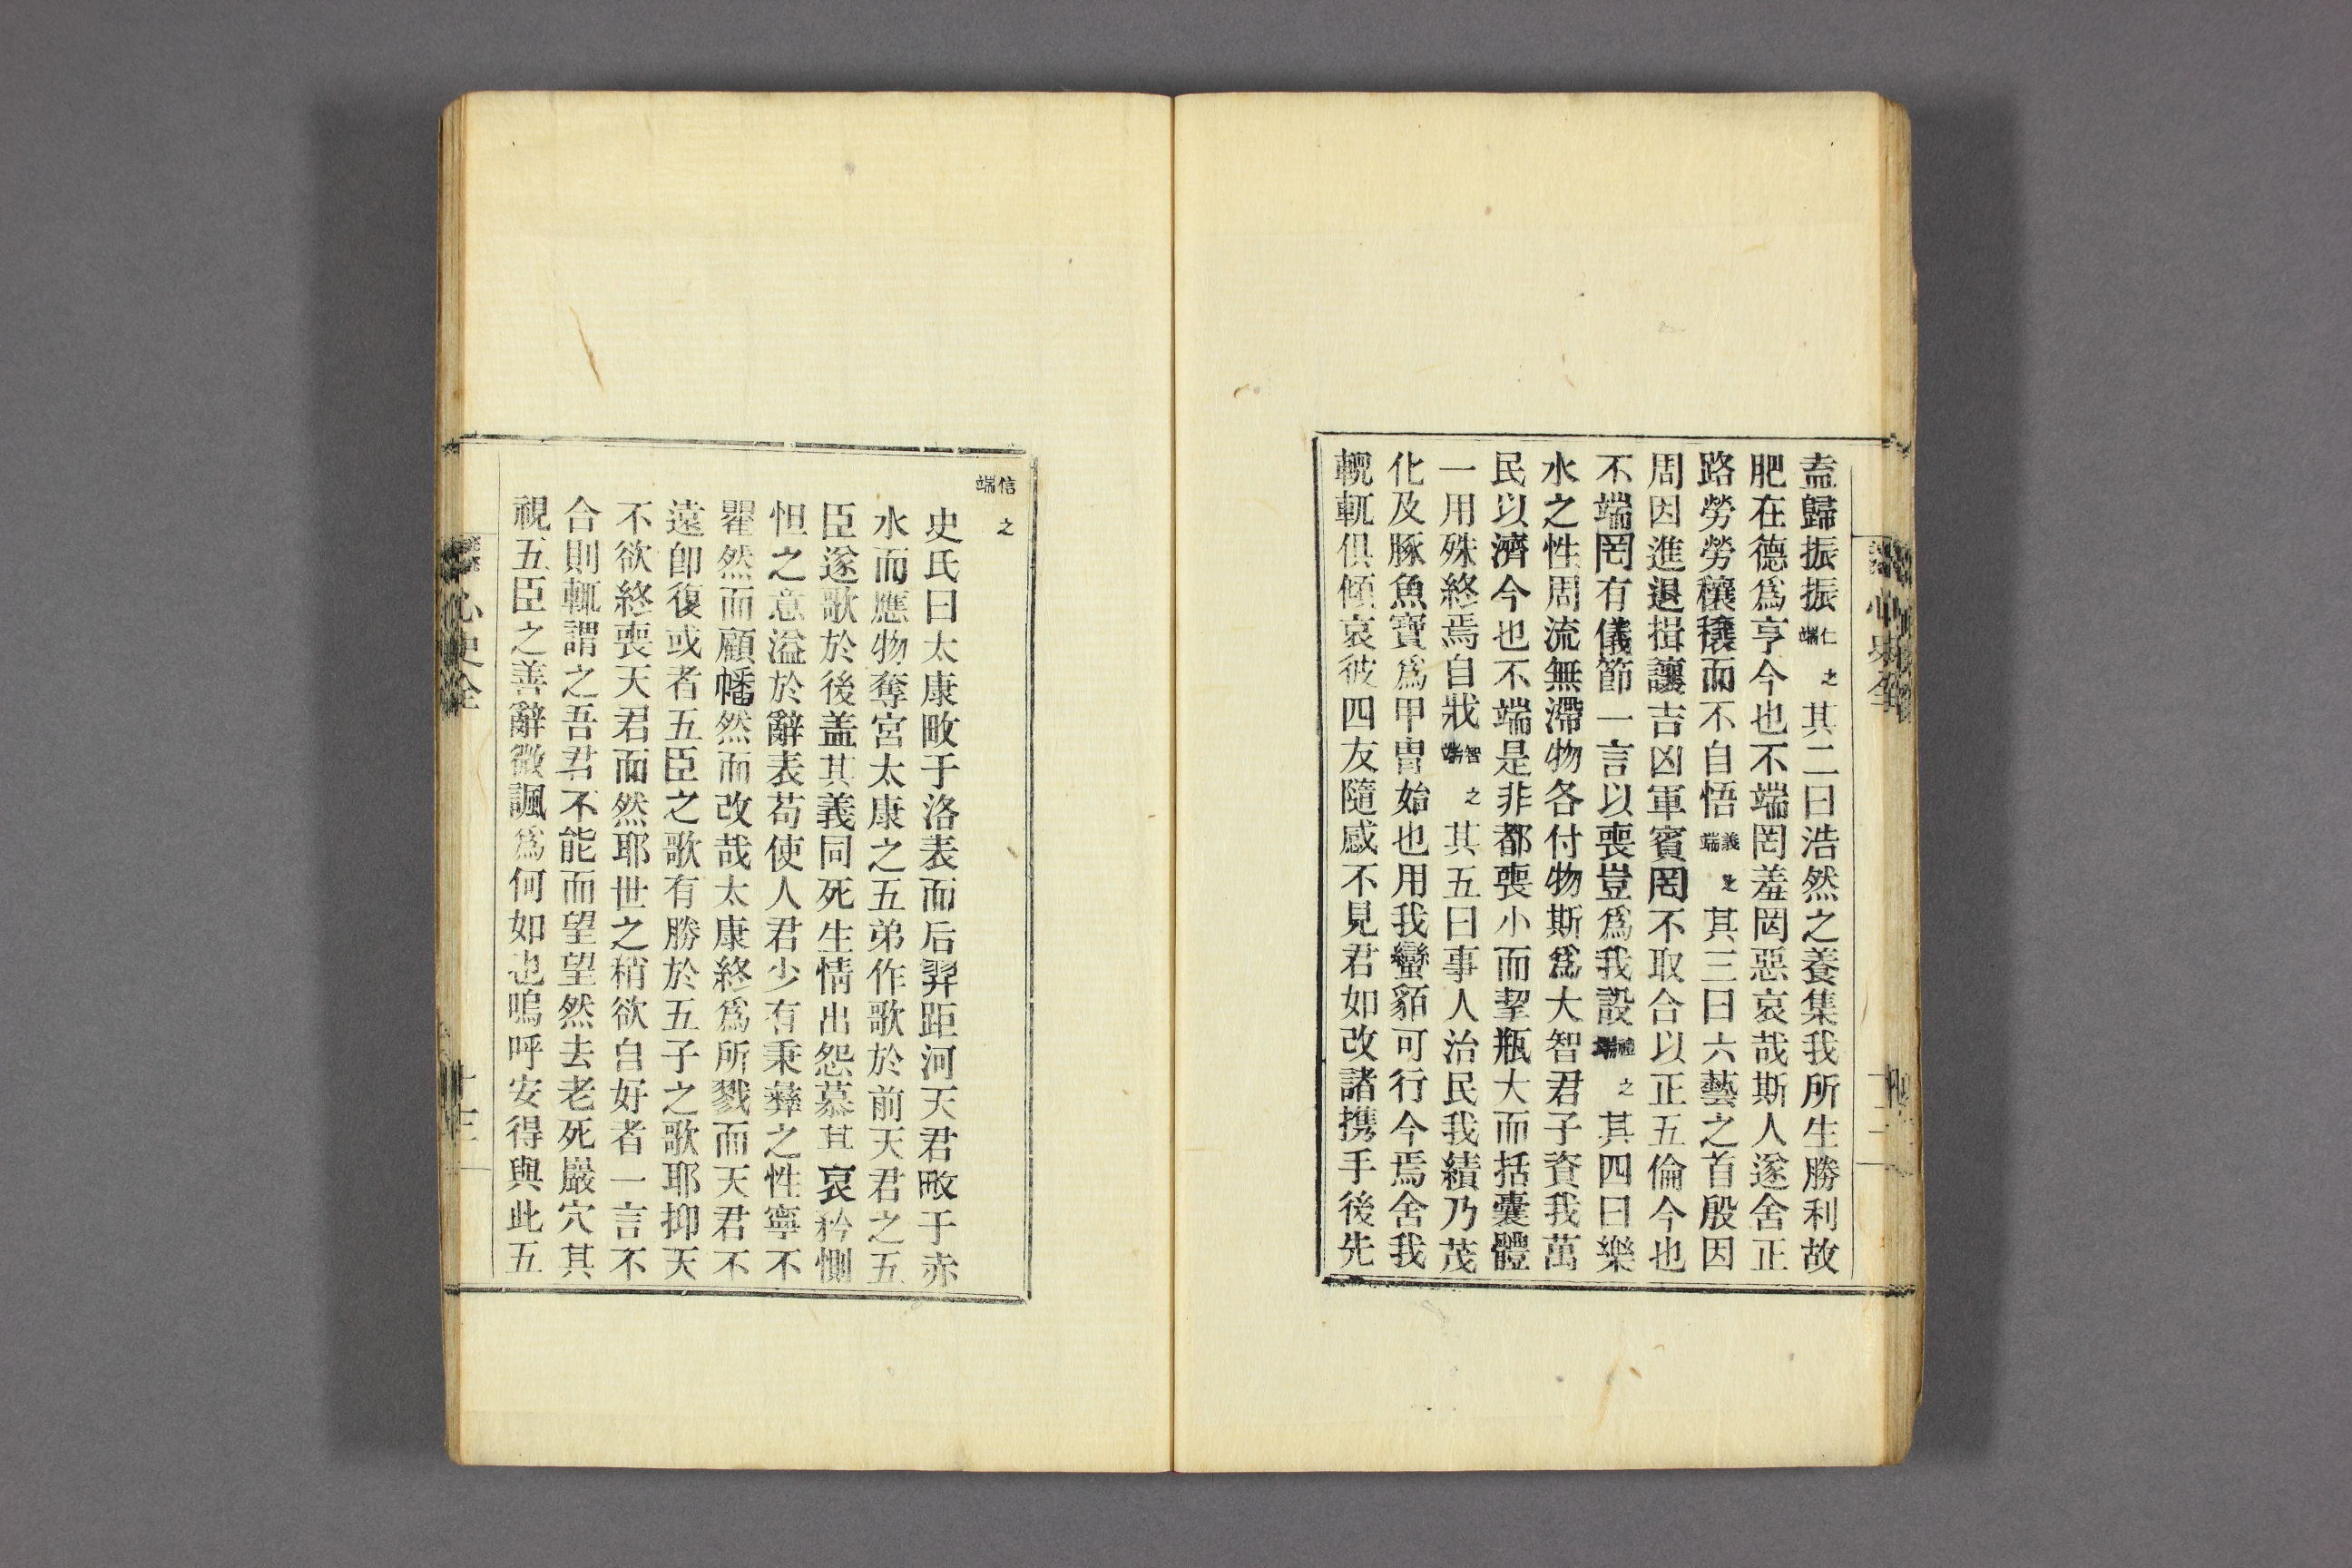 盍歸振振仁之端其二曰浩然之養集我所生勝利故
肥在德爲亨今也不端罔羞罔惡哀哉斯人遂舍正
路勞勞穰穰而不自悟義之端其三曰六藝之首殷因
周因進退揖讓吉凶軍賓罔不取合以正五倫今也
不端罔有儀節一言以喪豈爲我設禮之端其四曰樂
水之性周流無滯物各付物斯爲大智君子資我萬
民以濟今也不端是非都喪小而挈瓶大而括囊體
一用殊終焉自戕智之端其五曰事人治民我績乃茂
化及豚魚寶爲甲冑始也用我蠻貊可行今焉舍我
輗軏俱傾哀彼四友隨感不見君如改諸携手後先
信之端
史氏曰太康畋于洛表而后羿距河天君畋于赤
水而應物奪宮太康之五弟作歌於前天君之五
臣遂歌於後盖其義同死生情出怨慕其哀矜惻
怛之意溢於辭表苟使人君少有秉彝之性寧不
瞿然而顧幡然而改哉太康終爲所戮而天君不
遠卽復或者五臣之歌有勝於五子之歌耶抑天
不欲終喪天君而然耶世之稍欲自好者一言不
合則輒謂之吾君不能而望望然去老死巖穴其
視五臣之善辭微諷爲何如也嗚呼安得與此五
心史全
十三